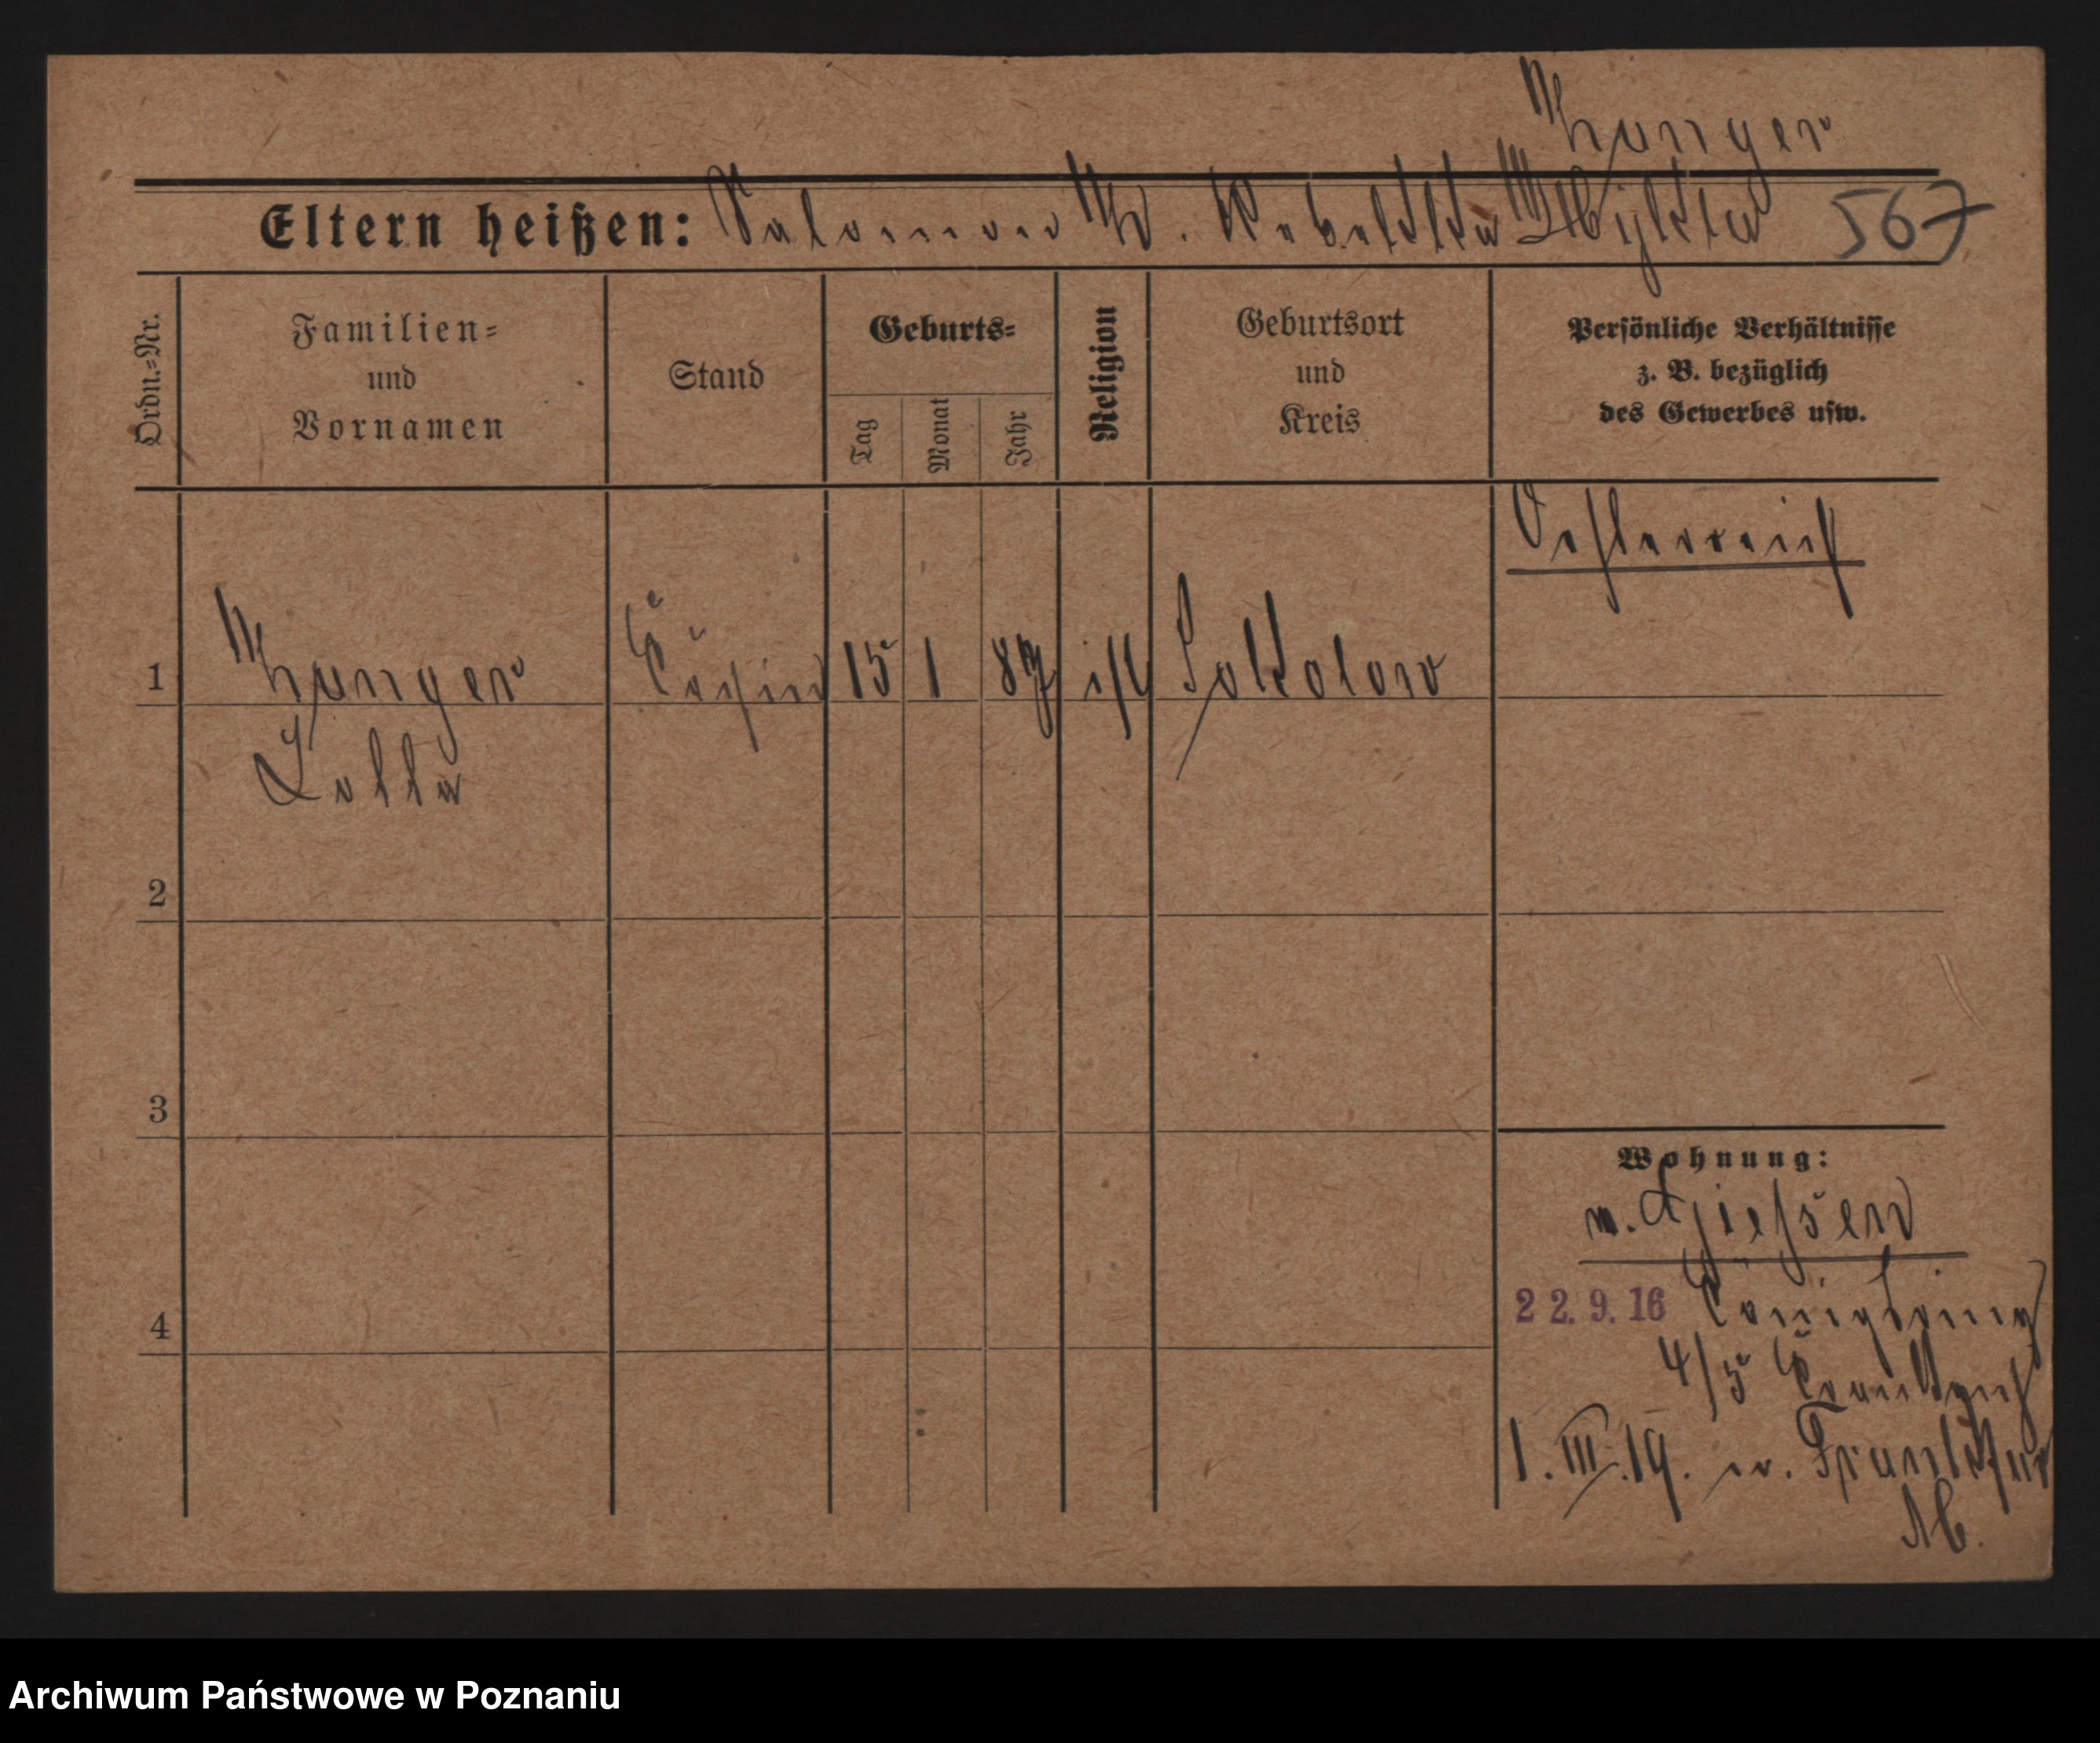 Hunger
Eltern heißen: Salomon H. Rebekka 567
Ordn.-Nr.
Familien=
und
Vornamen
Stand
Geburts=
Tag
Monat
Jahr
Religion
Geburtsort
und
Kreis
Persönliche Verhältnisse
z. B. bezüglich
des Gewerbes usw.
Oesterreich
1 Hunger 15 1 87 isr Sokolow
Lotte
2
3
Wohnung:
n. Giessen
22. 9. 16 Königsring
4
4/5
1. III. 19. n. Frankfur
Archiwum Państwowe w Poznaniu